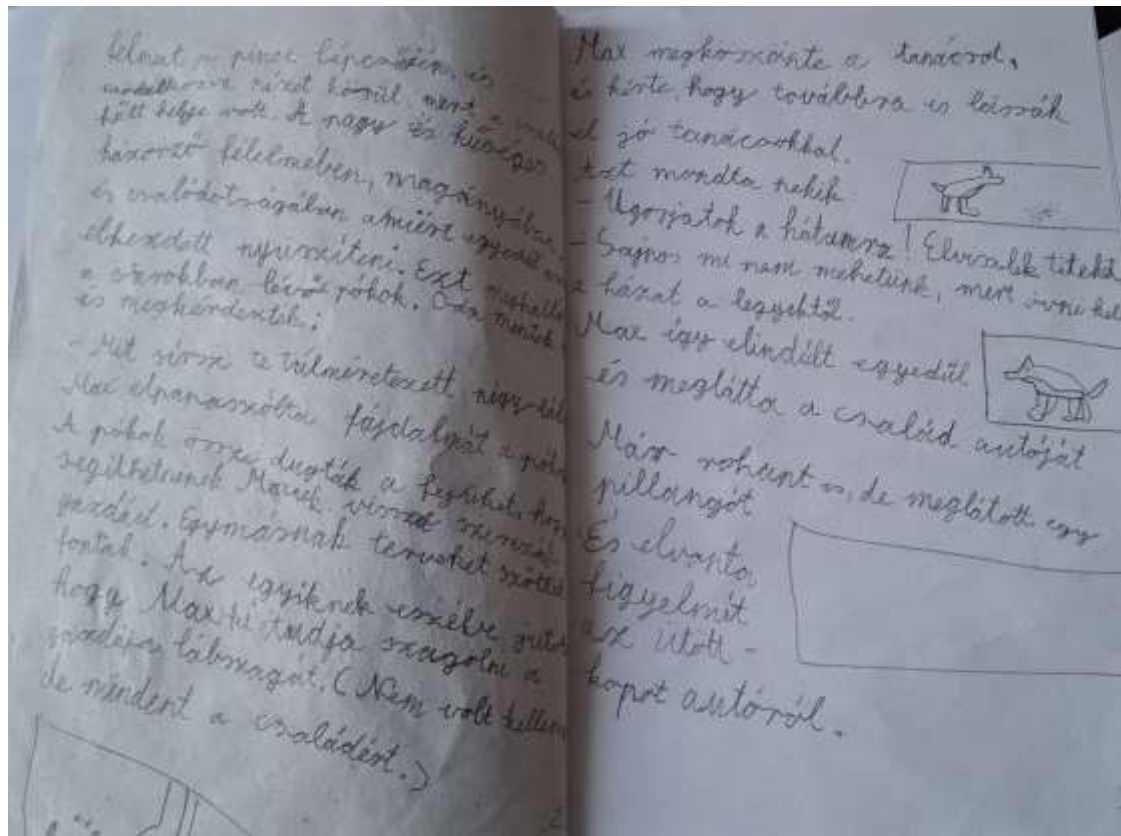 felmat a pince lépcsőjén, és
nézet körül, mert a
volt. A nagy és hűséges
házőrző félelmében, magányában,
és csalódotságában amiért egyedül
elkezdett nyüszíteni. Ezt meghallo
a sarokban lévő pókok. Oda mentek
és megkérdezték:
- Mit sírsz te túlméretezett négy-láb
Max elpanaszólta fájdalmát a
A pókok össze dugták a fejüket, ho
segíthetnének Maxnek vissza
gazdáit. Egymásnak terveket szőttek
fontak. Az egyiknek eszébe juto
hogy Max ki tudja szagolni a
gazdáén lábszagát. (Nem volt kellem
de mindent a családért.)
2
Max megköszönte a tanácsot,
és kérte, hogy továbbra is lássák
el jó tanácsokkal.
Azt mondta nekik
- Ugorjatok a hátamra! Elviszlek titeket
- Sajnos mi nem mehetünk, mert óvni kel
a házat a legyektől.
Max így elindúlt egyedűl
és meglátta a család autóját
Már rohant is, de meglátott egy
pillangót
És elvonta
figyelmét
az ütött -
kopot autóról.